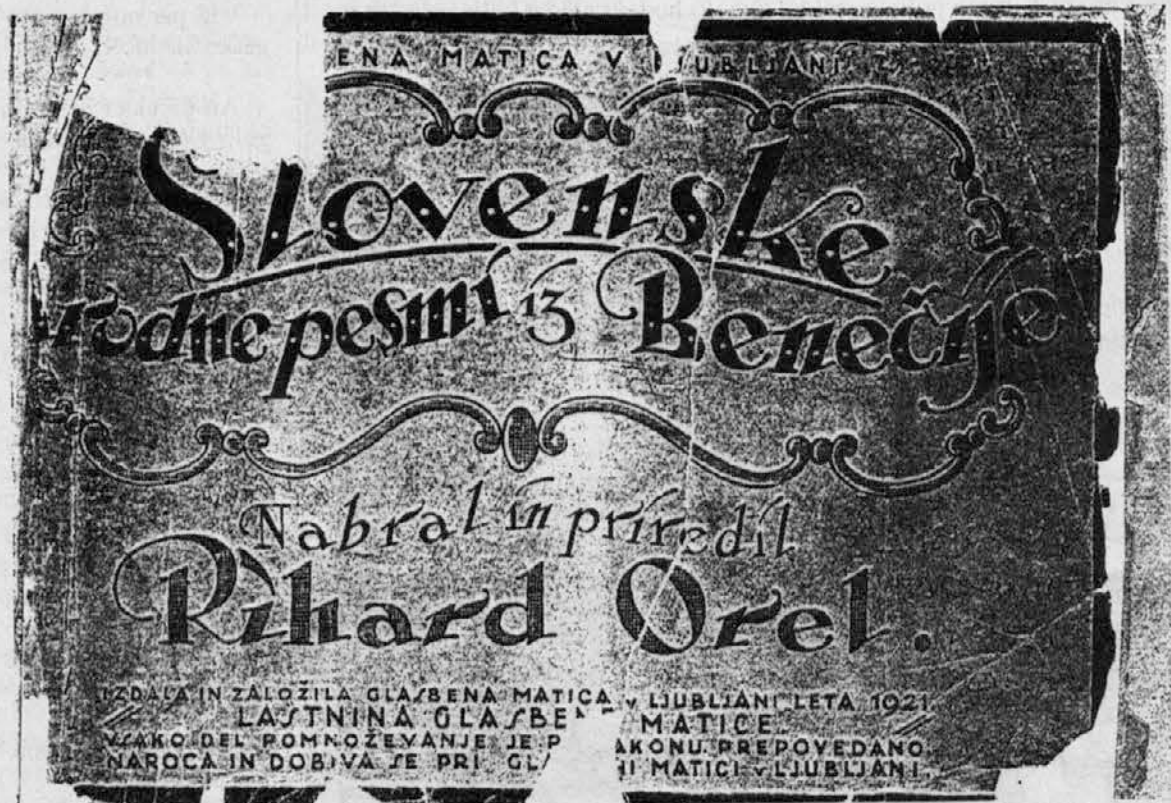 ENA MATICA V LJUBLJANI
Slovenske
rodne pesmi iz Benečije
Nabral in priredil
Rihard Orel.
IZDALA IN ZALOŽILA GLASBENA MATICA V LJUBLJANI LETA 1921.
LASTNINA GLASBE MATICE.
VSAKO DEL POMNOŽEVANJE JE P AKONU PREPOVEDANO.
NAROCA IN DOBIVA SE PRI GLA NI MATICI V LJUBLJANI.